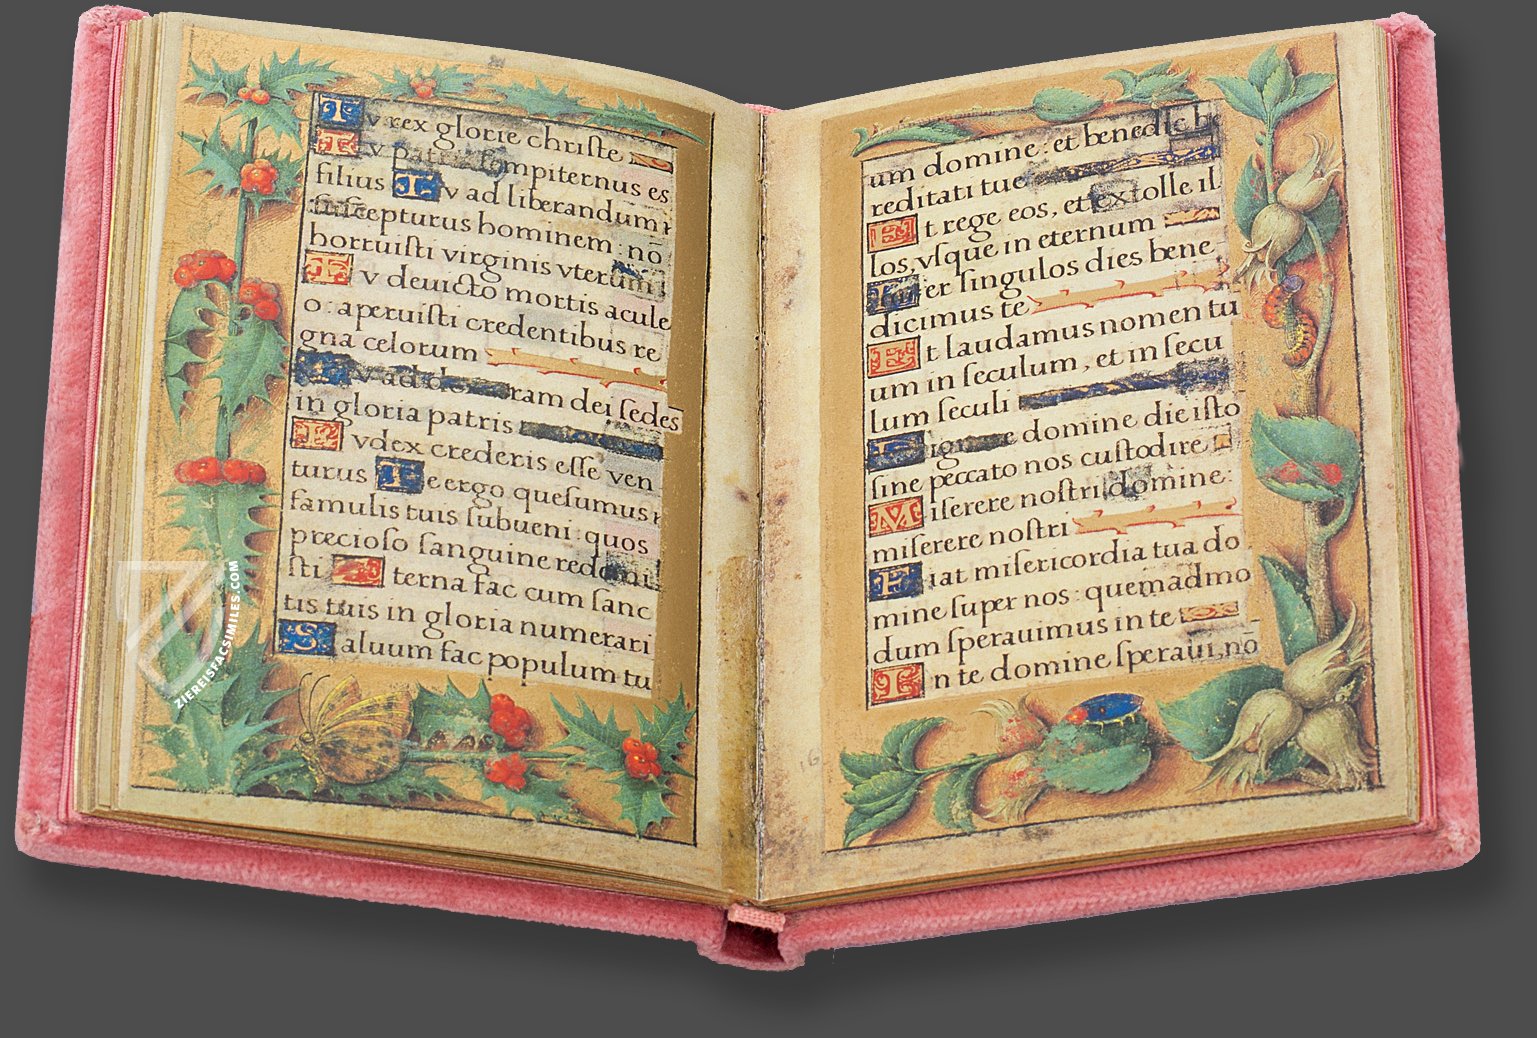 Tv rex glorie christe
Tv patris sempiternus es
filius Tv ad liberandum
suscepturus hominem: nō
horruisti virginis vterum
Tv deuicto mortis acule
o: aperuisti credentibus re
gna celorum
Tv ad dexteram dei sedes
in gloria patris
Ivdex crederis esse ven
turus Te ergo quesumus
famulis tuis subueni: quos
precioso sanguine redemi
sti Eterna fac cum sanc
tis tuis in gloria numerari
Saluum fac populum tu
um domine: et benedic he
reditati tue
Et rege eos, et extolle il
los, vsque in eternum
Per singulos dies bene
dicimus te
Et laudamus nomen tu
um in seculum, et in secu
lum seculi
Dignare domine die isto
sine peccato nos custodire
Miserere nostri domine:
miserere nostri
Fiat misericordia tua do
mine super nos: quemadmo
dum sperauimus in te
In te domine speraui, nō
ZIEREISFACSIMILES.COM